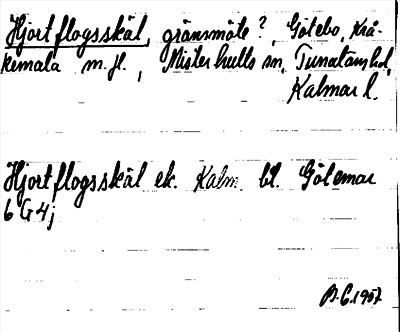 Hjortflogsskäl, gränsmöte?, Götebo, Krå-
kemåla m. fl., Misterhults sn, Tunaläns hd,
Kalmar l.
Hjortflogsskäl ek. Kalm. bl. Götemar
6 G 4 j
1957